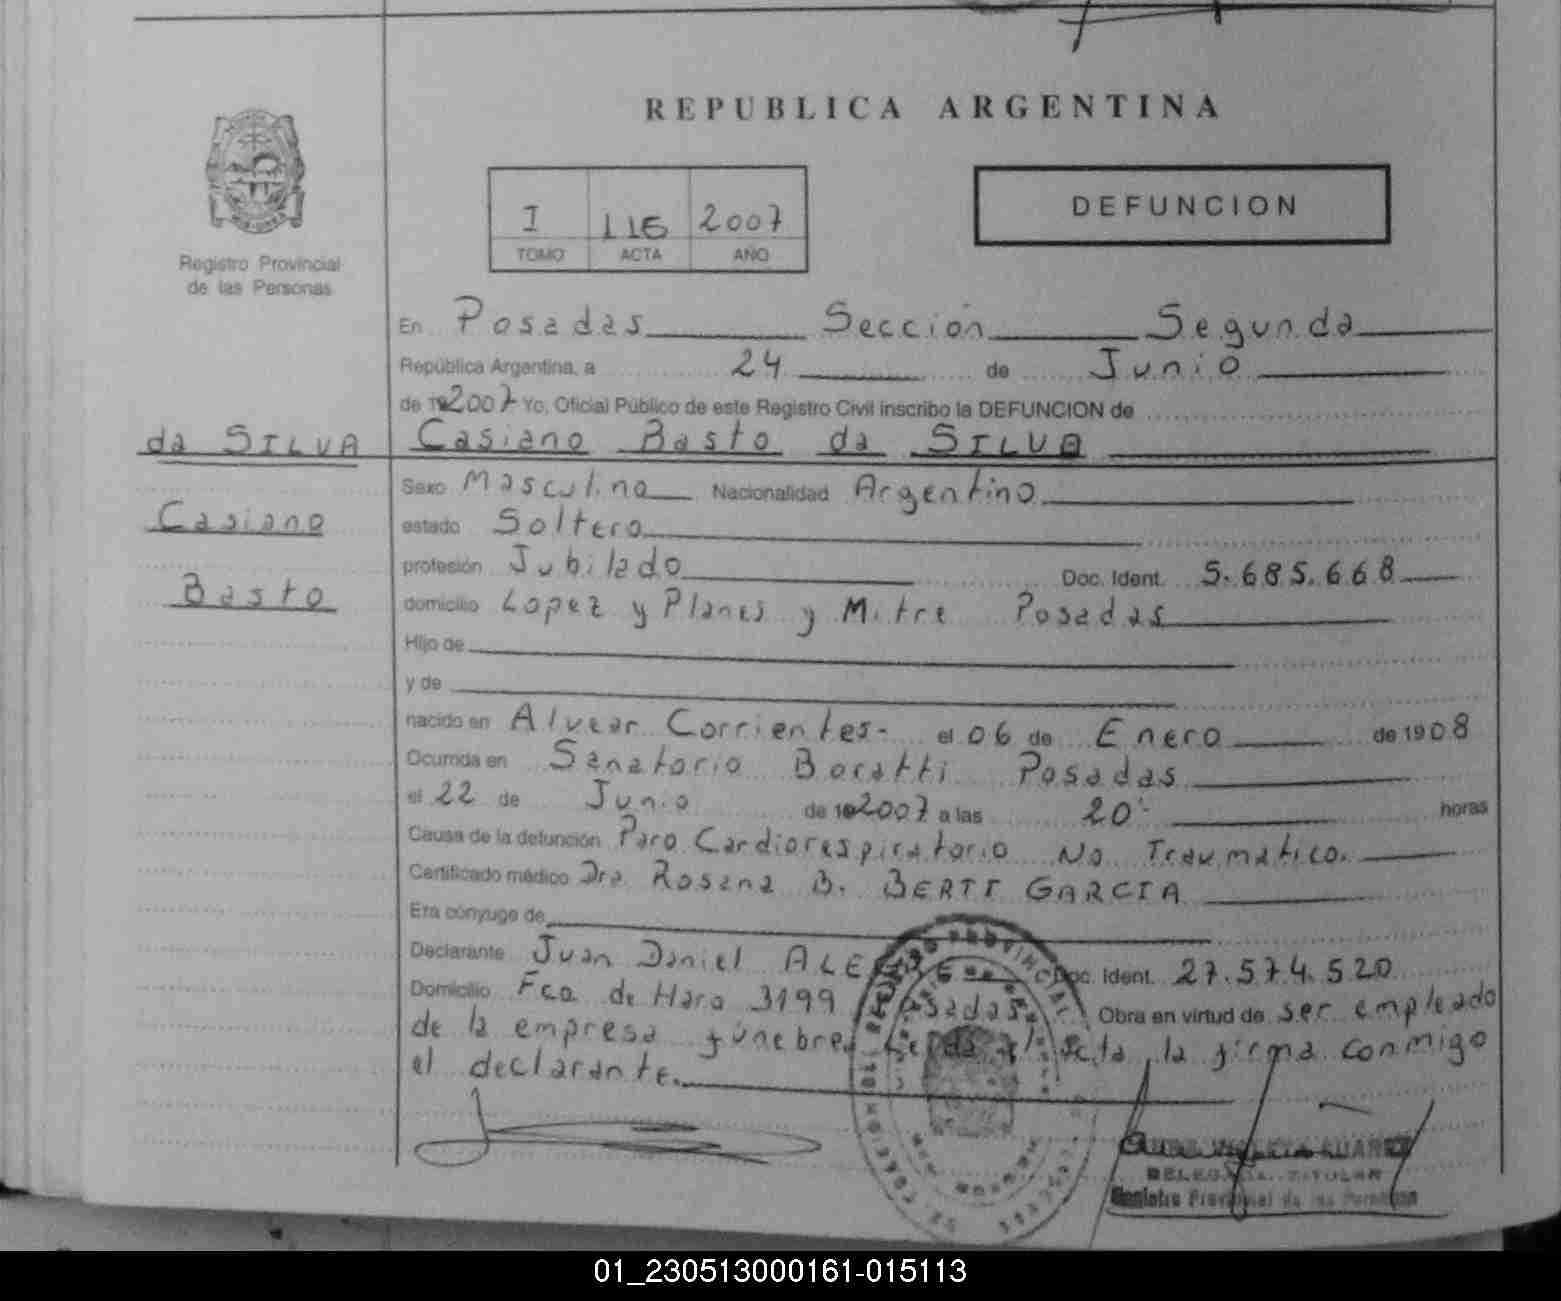 REPUBLICA ARGENTINA
DEFUNCION
I 116 2007
TOMO ACTA AÑO
Registro Provincial
de las Personas
En Posadas Sección Segunda
República Argentina, a 24 de Junio
de 192007 Yo, Oficial Público de este Registro Civil inscribo la DEFUNCION de
da SILVA
Casiano Basto da SILVA
Sexo Masculino Nacionalidad Argentino
Casiano
estado Soltero
profesión Jubilado Doc. Ident. 5.685.668
Basto
domicilio Lopez y Planes y Mitre Posadas
Hijo de
y de
nacido en Alvear Corrientes- el 06 de Enero de 1908
Ocurrida en Sanatorio Boratti Posadas
el 22 de Junio de 192007 a las 20 horas
Causa de la defunción Paro Cardiorespiratorio No Traumatico.
Certificado médico Dra. Rosana B. BERTI GARCIA
Era cónyuge de
Declarante Juan Daniel Doc. Ident. 27.574.520
Domicilio Fco. de Haro 3199 Posadas Obra en virtud de ser empleado
de la empresa fúnebre, el acta, la firma conmigo
el declarante.
SUAREZ
DELEGADA TITULAR
Registro Provincial de las Personas
01_230513000161-015113